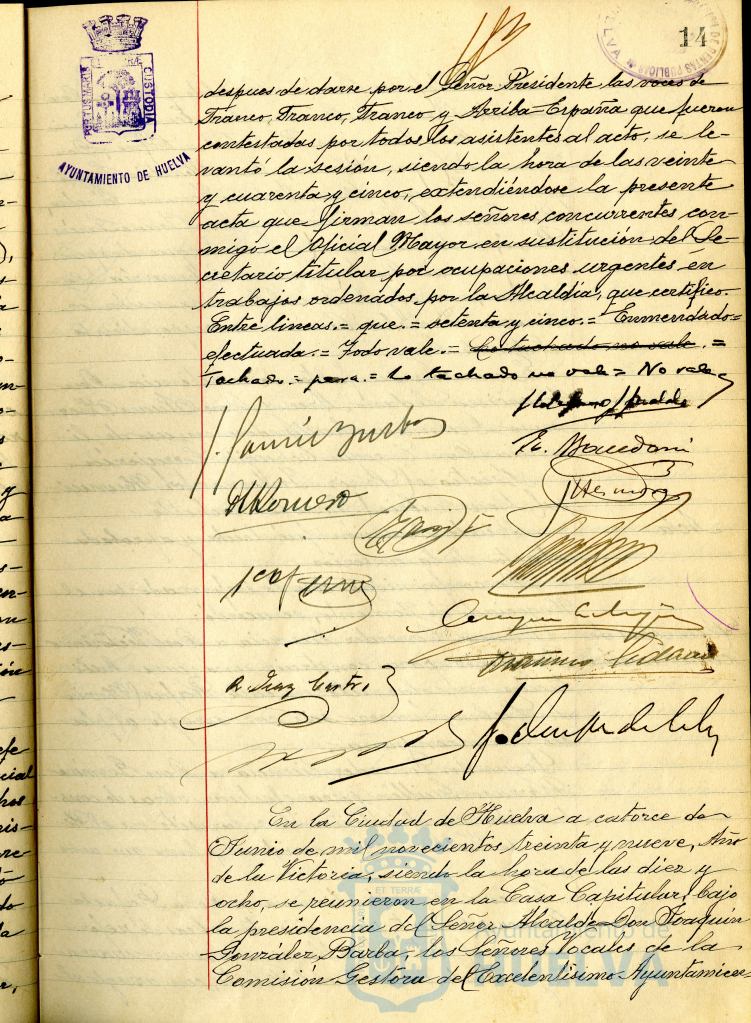 14
PORTUS MARIS ET TERRAE CUSTODIA
AYUNTAMIENTO DE HUELVA
despues de darse por el Señor Presidente las voces de
Franco, Franco, Franco y Arriba España que fueron
contestadas por todos los asistentes al acto, se le-
vantó la sesión, siendo la hora de las veinte
y cuarenta y cinco, extendiéndose la presente
acta que firman los señores concurrentes con-
migo el Oficial Mayor en sustitución del Se-
cretario titular por ocupaciones urgentes en
trabajos ordenados por la Alcaldía, que certifico.
Entre lineas.= que.= setenta y cinco.= Enmendado=
efectuada.= Todo vale.= Lo tachado no vale.=
Tachado.= para.= Lo tachado no vale= No vale
A. Romero
R. Diaz Castro
En la Ciudad de Huelva a catorce de
Junio de mil novecientos treinta y nueve, Año
de la Victoria, siendo la hora de las diez y
ocho, se reunieron en la Casa Capitular, bajo
la presidencia del Señor Alcalde Don Joaquin
González Barba, los Señores Vocales de la
Comisión Gestora del Excelentísimo Ayuntamien-
Ayuntamiento de
HUELVA